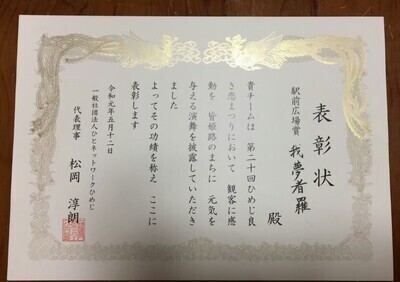 表彰状
駅前広場賞
我夢者羅 殿
貴チームは 第二十回ひめじ良
さ恋まつりにおいて 観客に感
動を 皆姫路のまちに 元気を
与える演舞を披露していただき
ました
よってその功績を称え ここに
表彰します
令和元年五月十二日
一般社団法人ひとネットワークひめじ
代表理事 松岡 淳朗